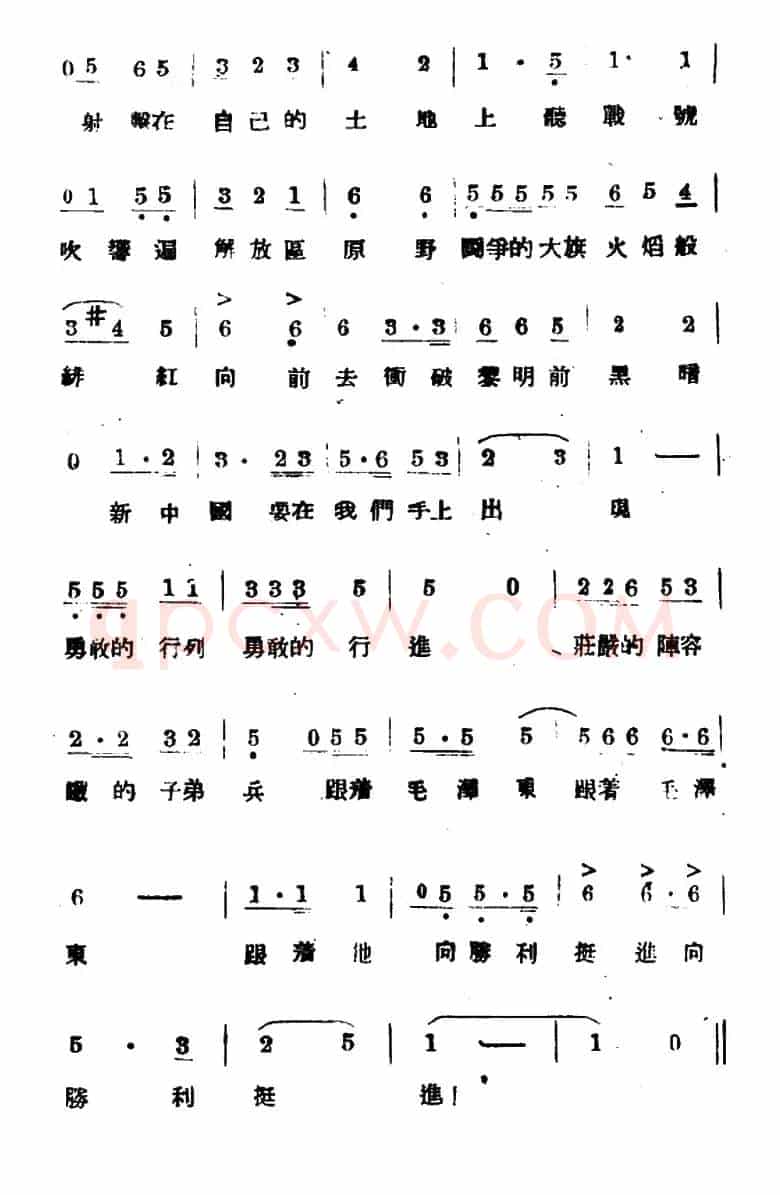 0 5 6 5 | 3 2 3 | 4 2 | 1 · 5 1 · 1 |
射擊在自己的土地上聽戰號
0 1 5 5 | 3 2 1 | 6 6 | 5 5 5 5 5 6 5 4 |
吹響遍解放區原野鬪爭的大旗火焰般
3 #4 5 | 6 6 6 3 · 3 | 6 6 5 2 2 |
緋紅向前去衝破黎明前黑暗
0 1 · 2 | 3 · 2 3 | 5 · 6 5 3 | 2 3 | 1 — |
新中國要在我們手上出現
5 5 5 1 1 | 3 3 3 5 | 5 0 | 2 2 6 5 3 |
勇敢的行列勇敢的行進、莊嚴的陣容
2 · 2 3 2 | 5 0 5 5 | 5 · 5 5 | 5 6 6 6 · 6 |
的子弟兵跟着毛澤東跟著毛澤
6 — | 1 · 1 1 | 0 5 5 · 5 | 6 6 · 6 |
東跟着他向勝利挺進向
5 · 3 | 2 5 | 1 — | 1 0 ‖
勝利挺進!
qpcxw.com